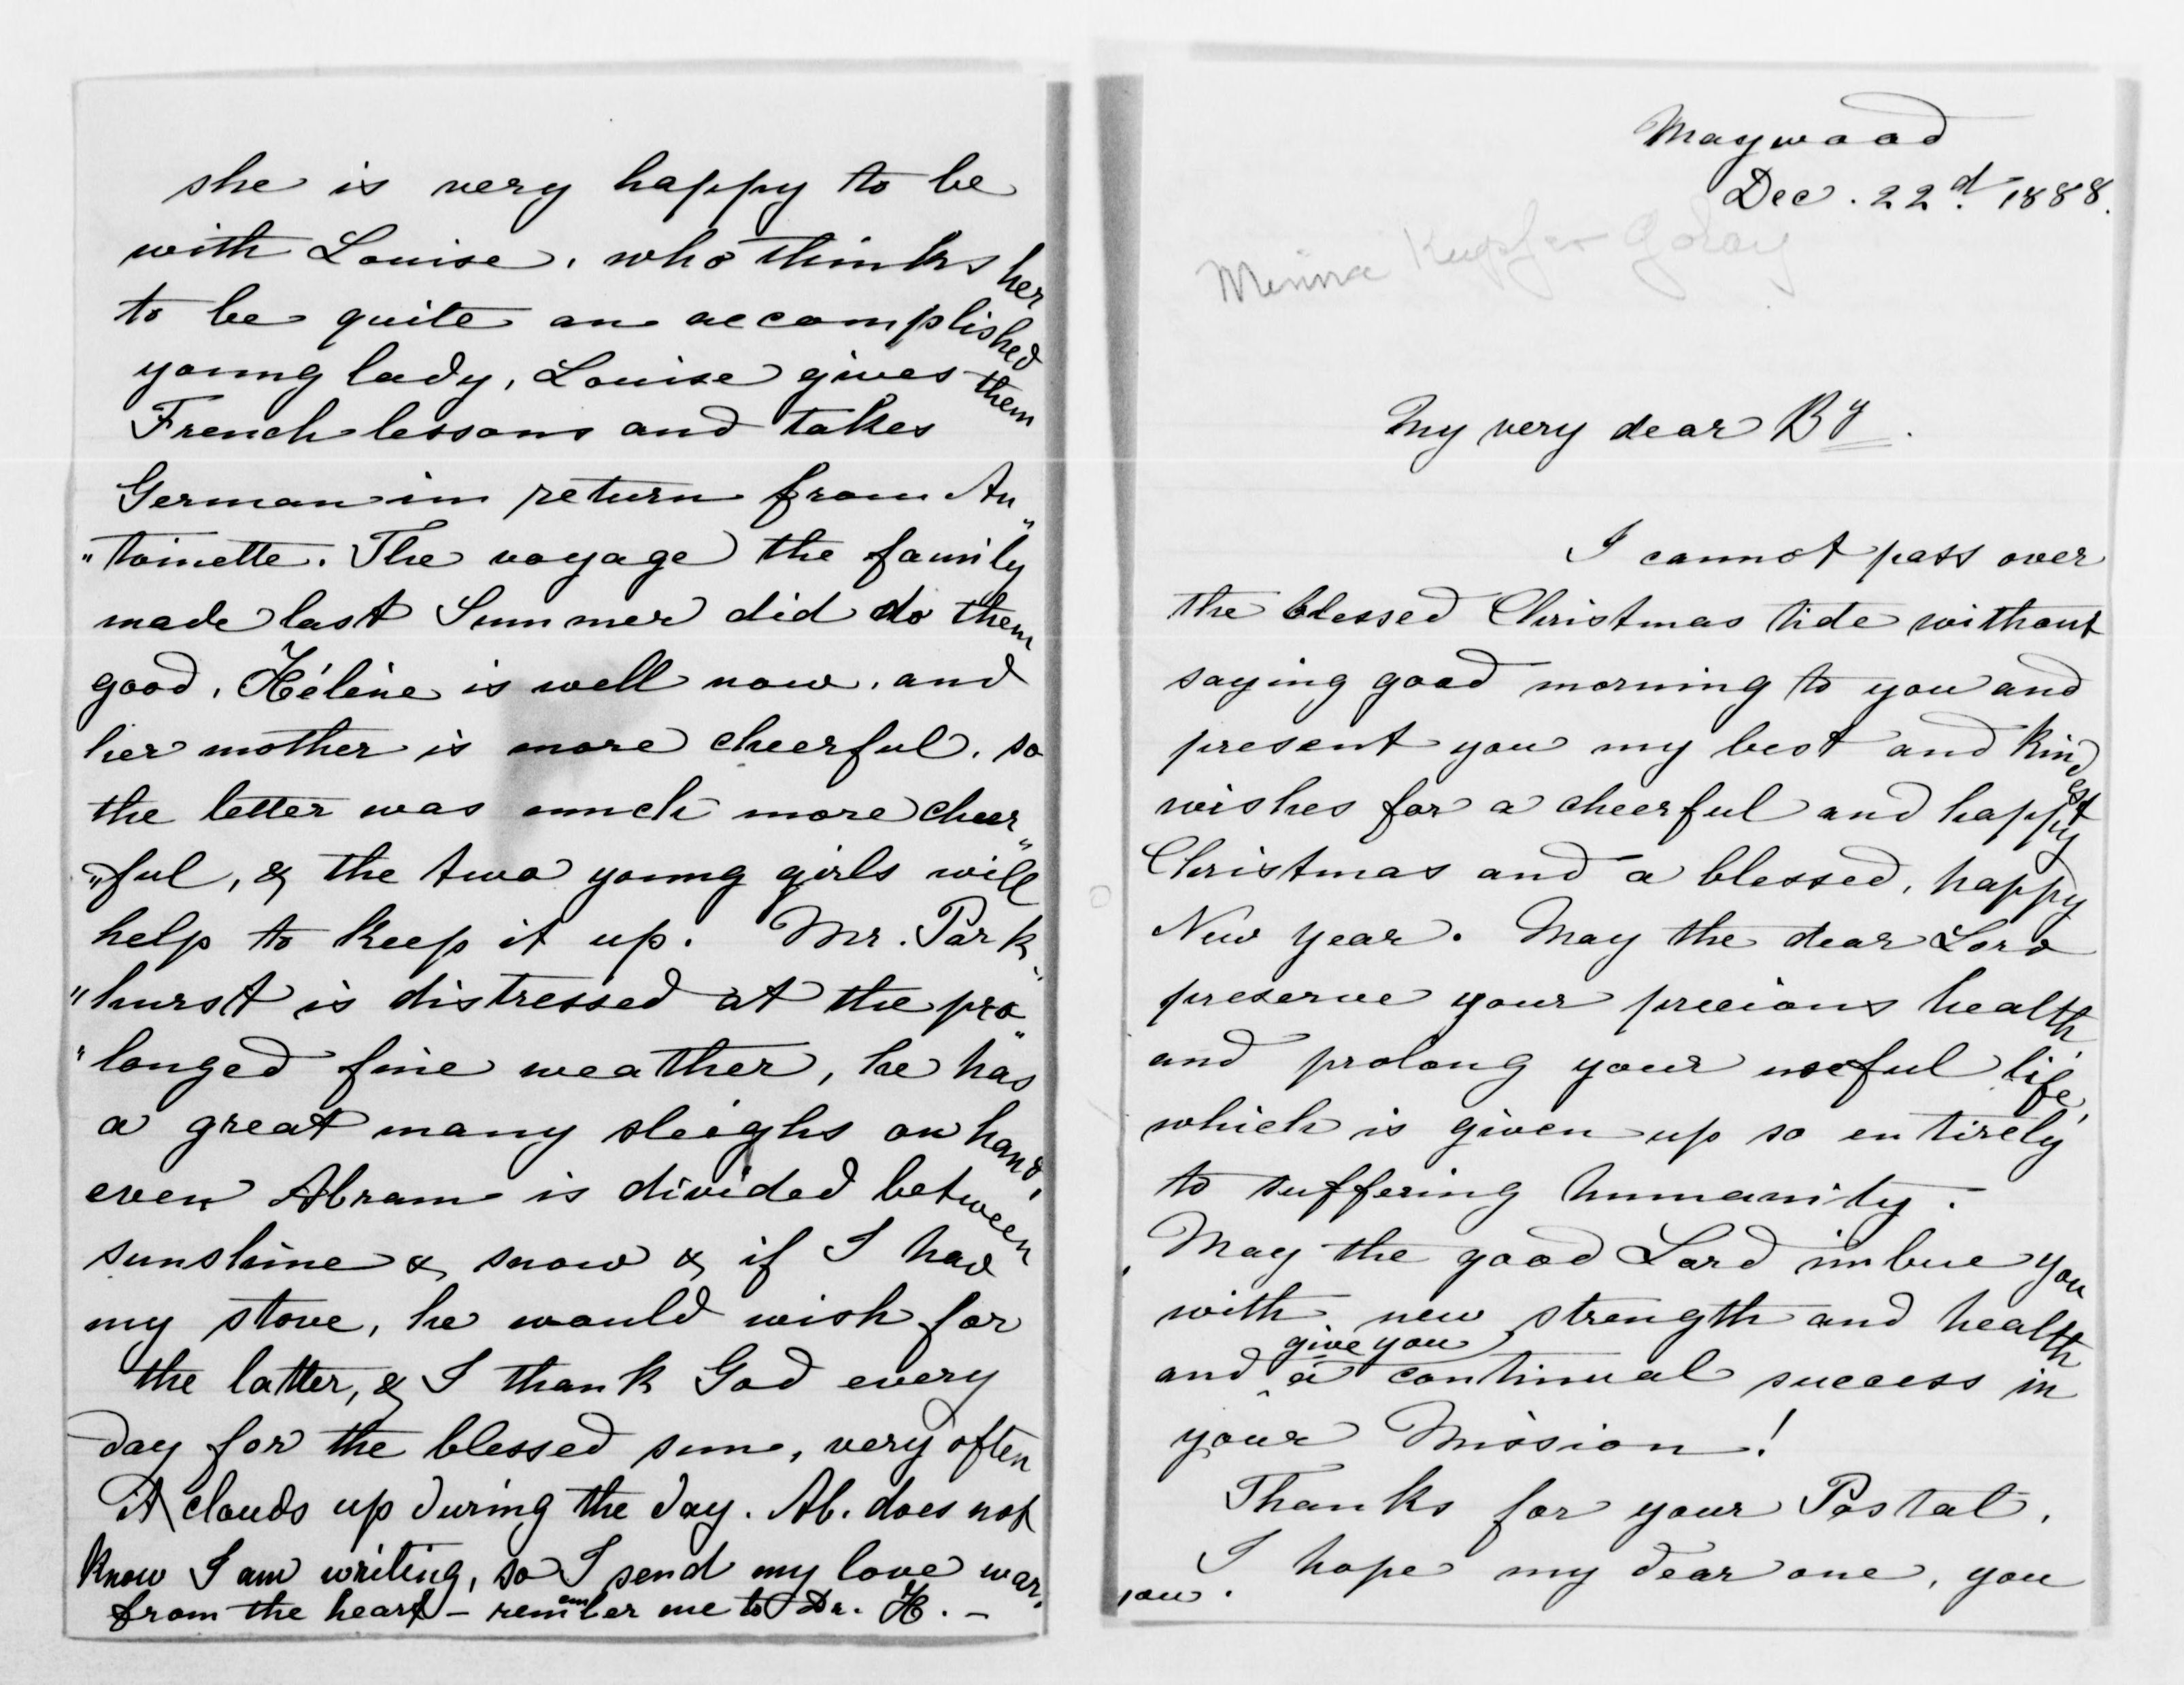 she is very happy to be
with Louise, who thinks her
to be quite an accomplished
young lady, Louise gives them
French lessons and takes
German in return from An„
„toinette. The voyage the family
made last Summer did do them
good, Hélène is well now, and
her mother is more cheerful, so
the letter was much more cheer„
„ful, & the two young girls will
help to keep it up. Mr. Park„
„hurst is distressed at the pro„
„longed fine weather, he has
a great many sleighs on hand,
even Abram is divided between
sunshine & snow & if I had
my stove, he would wish for
the latter, & I thank God every
day for the blessed sun, very often
it clouds up during the day. Ab. does not
know I am writing, so I send my love war.
from the heart – remember me to Dr. H. –
Maywood
Dec. 22d. 1888.
Minna Kupfer Golay
My very dear By.
I cannot pass over
the blessed Christmas tide without
saying good morning to you and
present you my best and kindest
wishes for a cheerful and happy
Christmas and a blessed, happy
New Year. May the dear Lord
preserve your precious health
and prolong your useful life,
which is given up so entirely
to suffering humanity.
May the good Lord imbue you
with new strength and health
and give you a continual success in
your Mission!
Thanks for your Postal.
I hope my dear one, you
you.